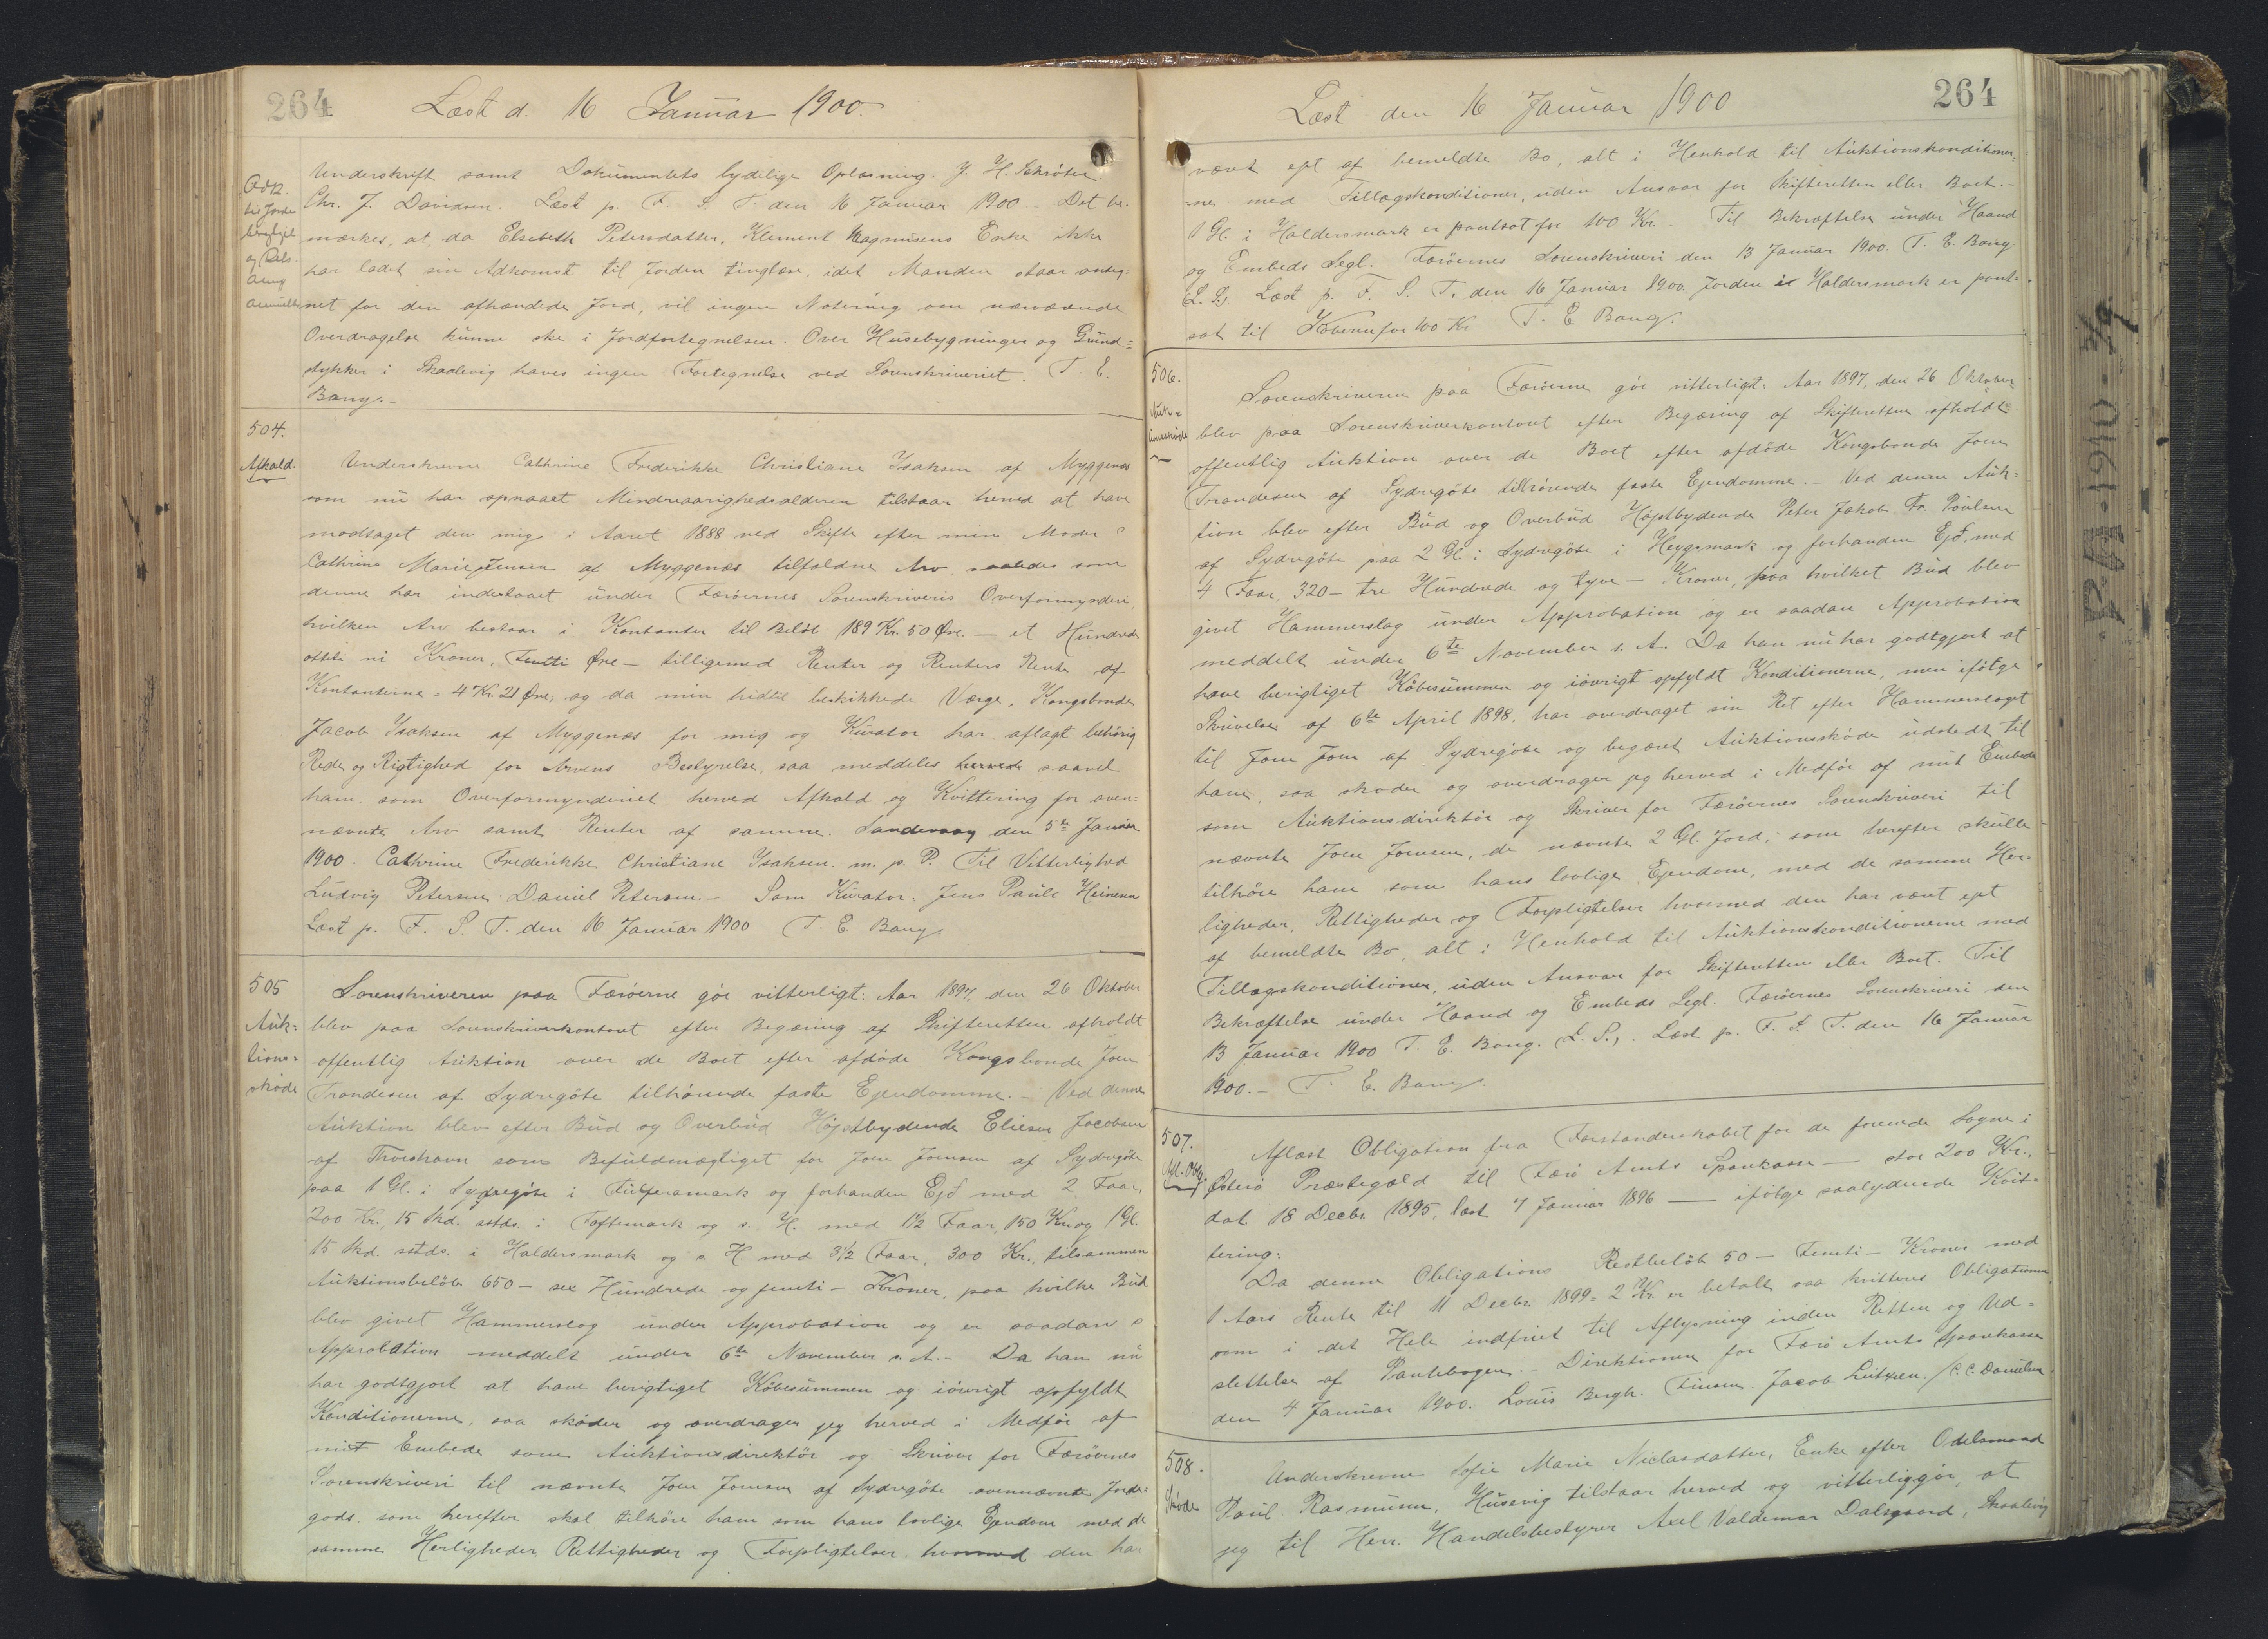 264
Læst d. 16 Januar 1900.
Underskrift samt Dokumentets lydelige Oplæsning. J. H. Schröter.
Chr. J. Davidsen. Læst p. F. S. T. den 16 Januar 1900. Det be-
mærkes, at da Elsebeth Petersdatter, Klement Magnusens Enke ikke
har ladet sin Adkomst til Jorden tinglæse, idet Manden staar anteg-
net for den afhændede Jord, vil ingen Notering om nærværende
Overdragelse kunne ske i Jordfortegnelsen. Over Husebygninger og Grund=
stykker i Skaalevig haves ingen Fortegnelse ved Sorenskriveriet. T. E.
Bang.-
504.
Afkald.
Underskrevne Cathrine Frederikke Christiane Isaksen af Myggenæs
som nu har opnaaet Mindreaarighedsalderen tilstaar herved at have
modtaget den mig i Aaret 1888 ved Skifte efter min Moder
Cathrine Marie Jensen af Myggenæs tilfaldne Arv saaledes som
denne har indestaaet under Færöernes Sorenskriveris Overformynderi,
hvilken Arv bestaar i Kontanter til Belöb 189 Kr. 50 Øre. - et Hundrede
otteti ni Kroner, Femti Øre - tilligemed Renter og Renters Rente af
Kontanterne = 4 Kr. 21 Øre; og da min hidtil beskikkede Værge, Kongsbonde
Jacob Isaksen af Myggenæs for mig og Kurator har aflagt behörig
Rede og Rigtighed for Arvens Bestyrelse, saa meddeles herved saavel
ham som Overformynderiet herved Afkald og Kvittering for oven-
nævnte Arv samt Renter af samme. Sandevaag den 5te Januar
1900. Cathrine Frederikke Christiane Isaksen. m. p. P. Til Vitterlighed
Ludvig Petersen Daniel Petersen.- Som Kurator: Jens Paule Heinesen
Læst p. F. S. T. den 16 Januar 1900 T. E. Bang.
505
Auk=
tions=
skøde
Sorenskriveren paa Færöerne gör vitterligt: Aar 1897, den 26 Oktober
blev paa Sorenskriverkontoret efter Begæring af Skifteretten afholdt
offentlig Auktion over de Boet efter afdöde Kongsbonde Joen
Trondesen af Sydregöte tilhörende faste Ejendomme.- Ved denne
Auktion blev efter Bud og Overbud Højstbydende Eliesar Jacobsen
af Thorshavn som Befuldmægtiget for Joen Joensen af Sydregöte
paa 1 Gl. i Sydregöte i og forhanden Ejd med 2 Faar,
200 Kr., 15 Skd. sstds. i Toftemark og s. H. med 1½ Faar, 150 Kr. og 1 Gl.
15 Skd. sstds. i Haldersmark og s. H med 3½ Faar, 300 Kr., tilsammen
Auktionsbeløb 650 - sex Hundrede og femti - Kroner, paa hvilke Bud
blev givet Hammerslag under Approbation og er saadan
Approbation meddelt under 6te November s. A.- Da han nu
har godtgjort at have berigtiget Köbesummen og iövrigt opfyldt
Konditionerne, saa sköder og overdrager jeg herved i Medför af
mit Embede som Auktionsdirektör og Skriver for Færöernes
Sorenskriveri til nævnte Joen Joensen af Sydregöte ovennævnte Jorde-
gods som herefter skal tilhöre ham som hans lovlige Ejendom med de
samme Herligheder Rettigheder og Forpligtelser hvormed den har
264
Læst den 16 Januar 1900
været ejet af bemeldte Bo, alt i Henhold til Auktionskonditioner-
ne med Tillægskonditioner, uden Ansvar for Skifteretten eller Boet.-
1 Gl. i Haldersmark er pantsat for 100 Kr.- Til Bekræftelse under Haand
og Embeds Segl. Færöernes Sorenskriveri den 13 Januar 1900. T. E. Bang
L. S. Læst p. F. S. T. den 16 Januar 1900. Jorden i Haldersmark er pant-
sat til for 100 Kr T. E. Bang.
506.
Auk-
tionsskøde
Sorenskriveren paa Færöerne gör vitterligt: Aar 1897, den 26 Oktober
blev paa Sorenskriverkontoret efter Begæring af Skifteretten afholdt
offentlig Auktion over de Boet efter afdöde Kongsbonde Joen
Trondesen af Sydregöte tilhörende faste Ejendomme.- Ved denne Auk-
tion blev efter Bud og Overbud Højstbydende Peter Jakob Fr. Poulsen
af Sydregöte paa 2 Gl. i Sydregöte i Heygsmark og forhanden Ejd. med
4 Faar, 320 - tre Hundrede og tyve - Kroner, paa hvilket Bud blev
givet Hammerslag under Approbation og er saadan Approbation
meddelt under 6te November s. A. Da han nu har godtgjort at
have berigtiget Köbesummen og iövrigt opfyldt Konditionerne, men ifölge
Skrivelse af 6te April 1898, har overdraget sin Ret efter Hammerslaget
til Joen Joen af Sydregöte og begæret Auktionsskøde udstedt til
ham, saa skøder og overdrager jeg herved i Medför af mit Embede
som Auktionsdirektör og Skriver for Færöernes Sorenskriveri til
nævnte Joen Joensen, de nævnte 2 Gl. Jord, som herefter skulle
tilhöre ham som hans lovlige Ejendom, med de samme Her-
ligheder, Rettigheder og Forpligtelser hvormed den har været ejet
af bemeldte Bo, alt i Henhold til Auktionskonditionerne med
Tillægskonditioner, uden Ansvar for Skifteretten eller Boet. Til
Bekræftelse under Haand og Embeds Segl. Færöernes Sorenskriveri den
13 Januar 1900 T. E. Bang. (L. S.). Læst p. F. S. T. den 16 Januar
1900.- T. E. Bang.
507.
Afl. Obl.
Aflæst Obligation fra Forstanderskabet for de forenede Sogne i
Østerö Præstegæld til Færö Amts Sparkasse - stor 200 Kr.,
dat 18 Decbr. 1895, læst 7 Januar 1896 - ifölge saalydende Kvit-
tering:
Da denne Obligations Restbelöb 50 - Femti - Kroner med
1 Aars Rente til 11 Decbr. 1899 = 2 Kr. er betalt saa kvitteres Obligationen
som i det Hele indfriet til Aflysning inden Retten og Ud-
slettelse af Pantebogen.- Direktionen for Færö Amts Sparkasse
den 4 Januar 1900. Louis Bergh. Finsen. Jacob Lützen. /C. C. Danielsen.
508.
Skøde
Underskrevne Sofie Marie Niclasdatter, Enke efter Odelsmand
Poul Rasmussen, Husevig tilstaar herved og vitterliggör, at
jeg til Herr. Handelsbestyrer Axel Valdemar Dalsgaard, Skaalevig